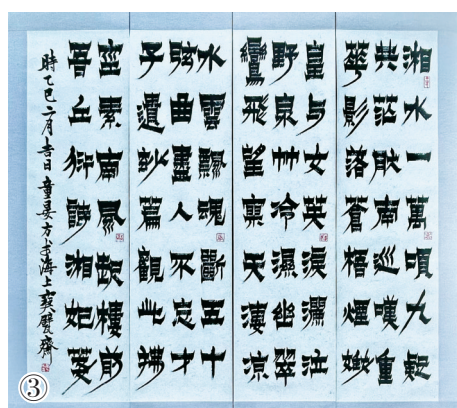 湘水一萬頃九疑
共茫肰南巡嘆重
華影落蒼梧煙娥
皇与女英淚瀾泣
野泉艸冷濕幽翠
鸞飛望天凄涼
水雲飄魂斷五十
弦曲盡人不忘才
子遺妙篇觀此拂
素南風樓前
吾丘衍詩湘妃墓
時乙巳二月吉日童晏方于海上寶甓齋
③